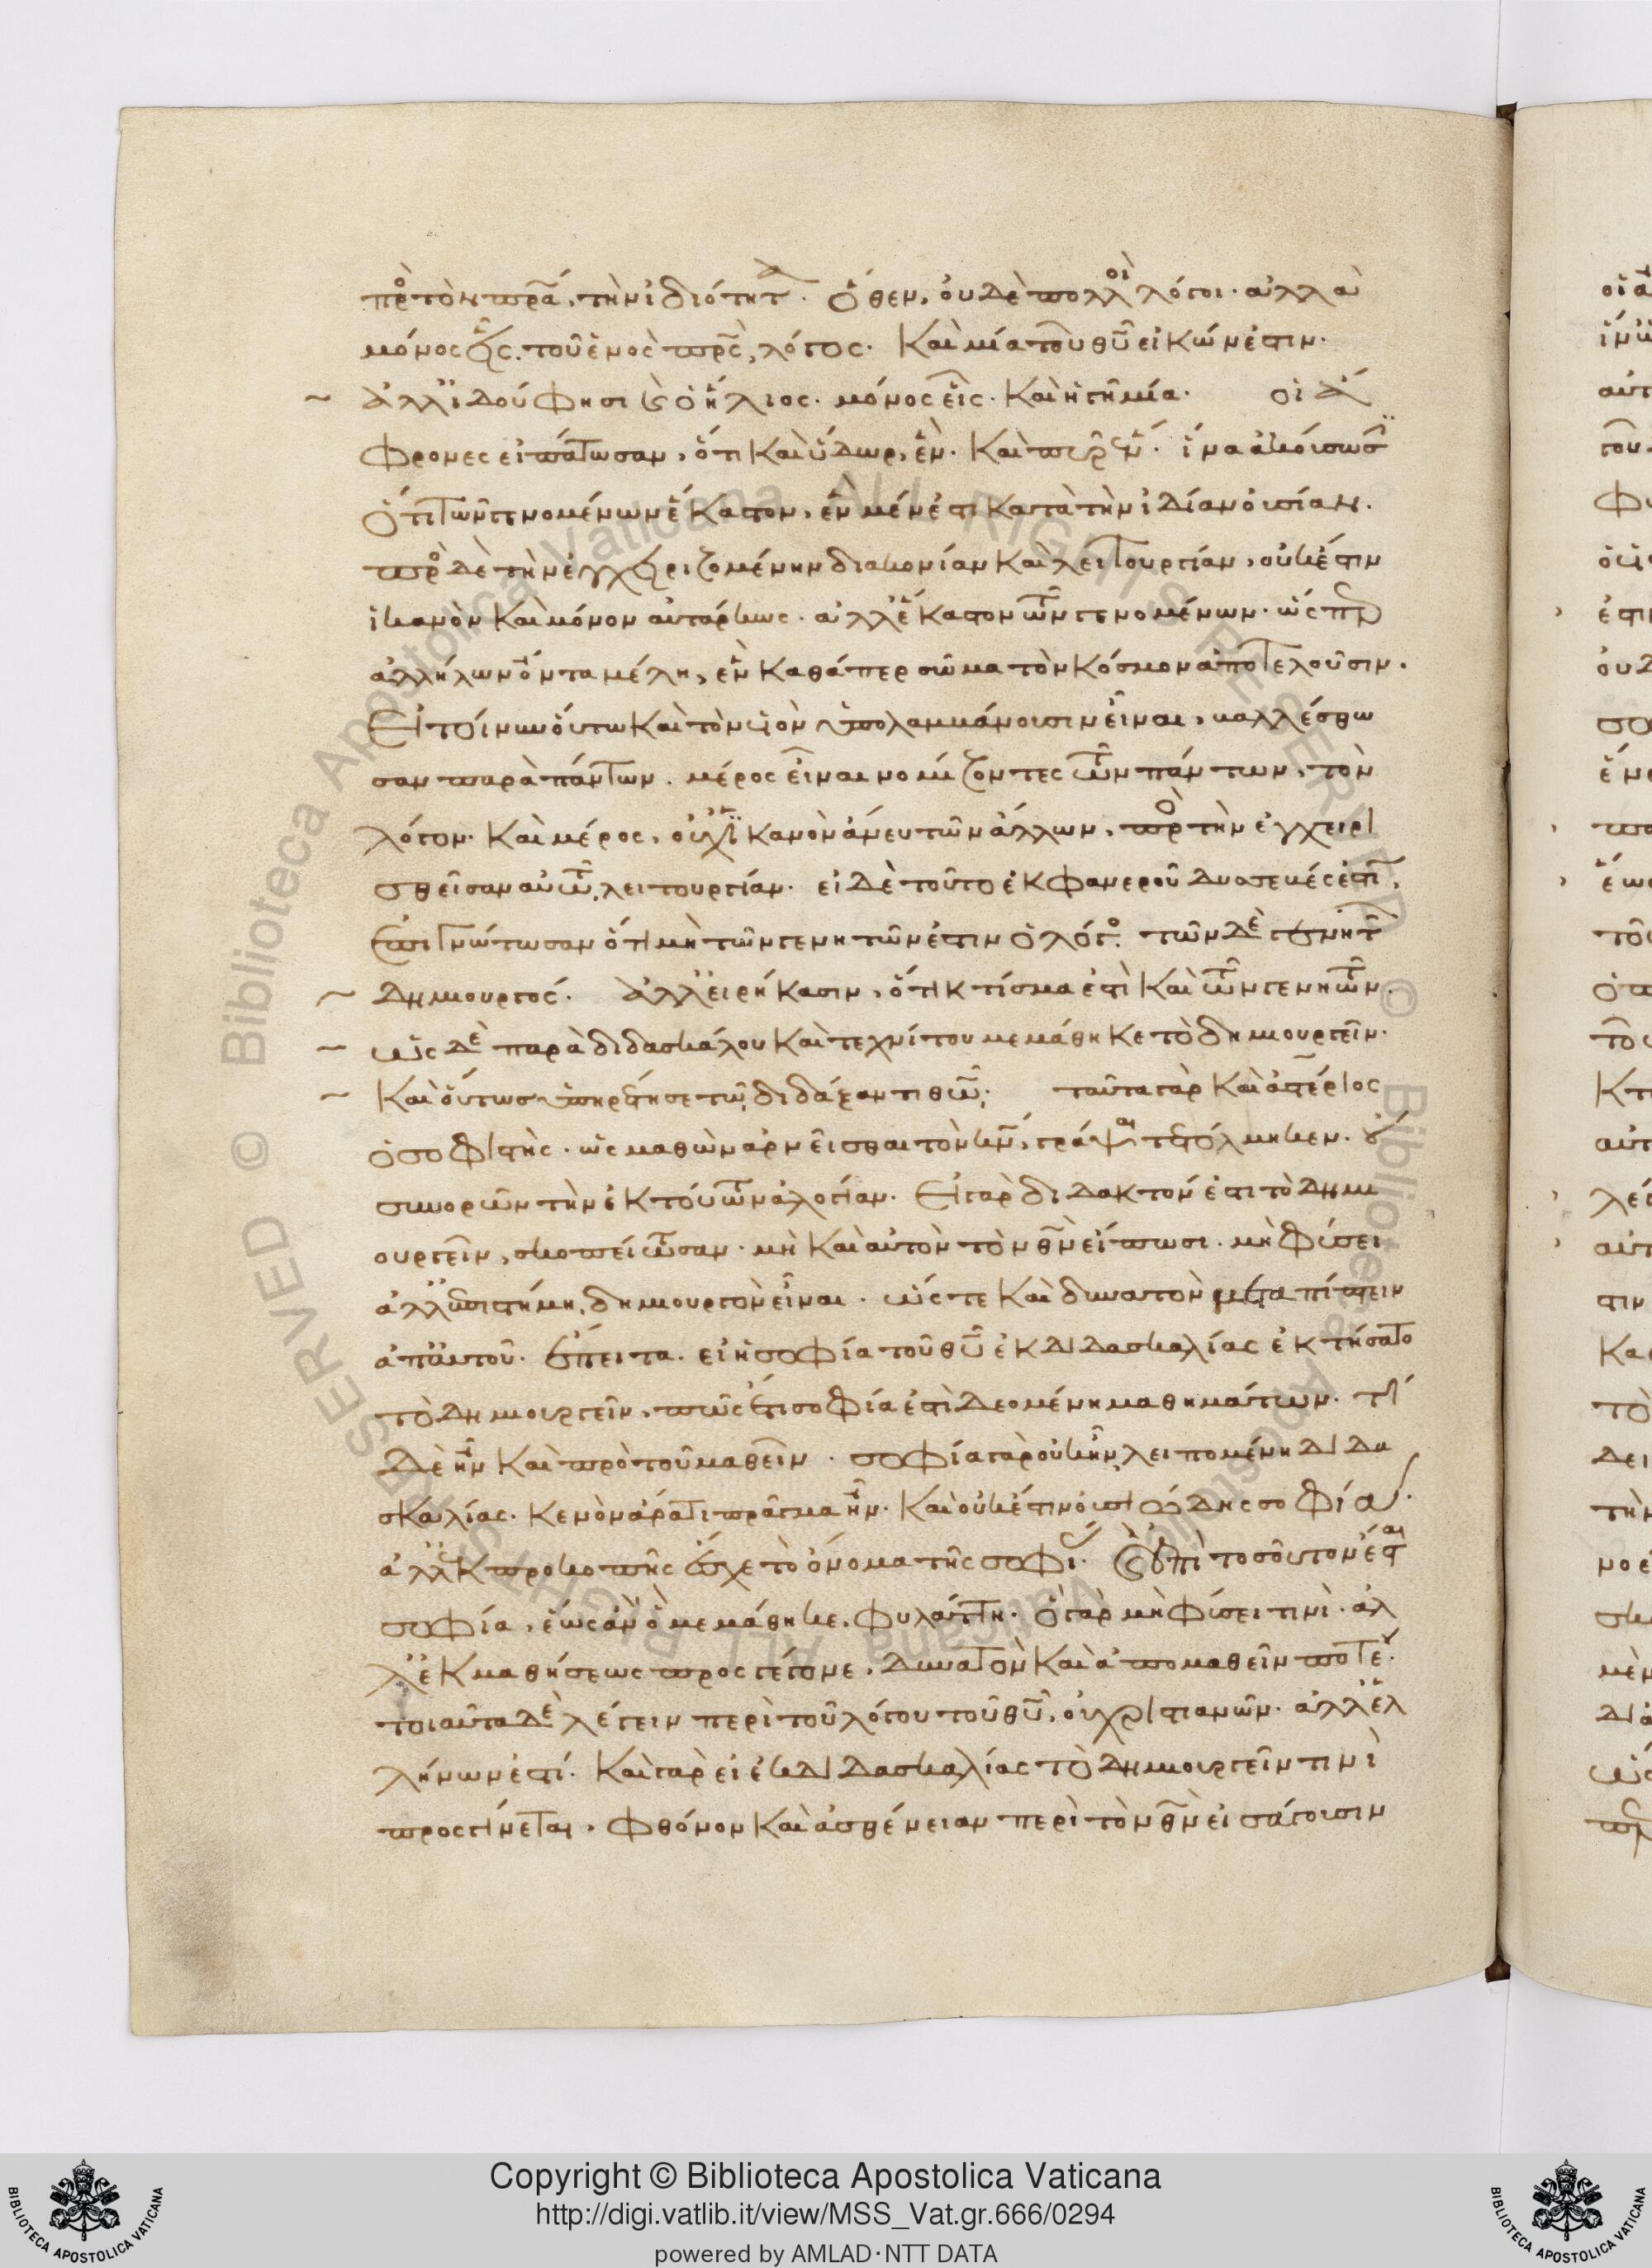 πρὸς τὸν πρα, τὴν ἰδιότητα. Ὅθεν, οὐδὲ πολλοὶ λόγοι. ἀλλὰ
μόνος εἷς, τοῦ ἑνὸς πρς, λόγος. Καὶ μία τοῦ θυ εἰκών ἐστιν.
Ἀλλ' ἰδού φησι καὶ ὁ ἥλιος. μόνος εἷς. Καὶ ἡ γῆ μία. οἱ ἄ
φρονες εἰπάτωσαν, ὅτι Καὶ ὕδωρ, ἕν. Καὶ πῦρ ἕν. ἵνα ἀκούσωσιν
Ὅτι τῶν γενομένων ἕκαστον, ἓν μέν ἐστι κατὰ τὴν ἰδίαν οὐσίαν.
πρὸς δὲ τὴν ἐγχειριζομένην διακονίαν Καὶ λειτουργίαν, οὐκ ἔστιν
ἱκανὸν Καὶ μόνον αὐτάρκως. ἀλλ' ἕκαστον τῶν γενομένων. ὥσπερ
ἀλλήλων ὄντα μέλη, ἓν Καθάπερ σῶμα τὸν Κόσμον ἀποτελοῦσιν.
Εἰ τοίνυν οὕτω Καὶ τὸν υἱὸν ὑπολαμβάνουσιν εἶναι, βαλλέσθω
σαν παρὰ πάντων. μέρος εἶναι νομίζοντες τῶν πάντων, τὸν
λόγον. Καὶ μέρος, οὐχ ἱκανὸν ἄνευ τῶν ἄλλων, πρὸς τὴν ἐγχειρι
σθεῖσαν αὐτῶ, λειτουργίαν. εἰ δὲ τοῦτο ἐκ φανεροῦ δυσσεβές ἐστι,
ἐπιγνώτωσαν ὅτι μὴ τῶν γενητῶν ἐστιν ὁ λόγος. τῶν δὲ
Δημιουργός. Ἀλλ' εἰρήκασιν, ὅτι κτίσμα ἐστὶ Καὶ τῶν γενητῶν.
ὡς δὲ παρὰ διδασκάλου Καὶ τεχνίτου μεμάθηκε τὸ δημιουργεῖν.
Καὶ οὕτως ὑπηρέτησε τῶ διδάξαντι θῶ. ταῦτα γὰρ Καὶ ἀστέριος
ὁ σοφιστὴς. ὡς μαθὼν ἀρνεῖσθαι τὸν κν, γράψαι τετόλμηκεν. οὐ
συνορῶν τὴν ἐκ τούτων ἀλογίαν. Εἰ γὰρ διδακτόν ἐστι τὸ δημι
ουργεῖν, σκοπείτωσαν. μὴ Καὶ αὐτὸν τὸν θν εἴπωσι. μὴ φύσει
ἀλλ' ἐπιστήμη, δημιουργὸν εἶναι. ὥστε Καὶ δυνατὸν μεταπίπτειν
ἀπ' αὐτοῦ. ἔπειτα. εἰ ἡ σοφία τοῦ θυ ἐκ διδασκαλίας ἐκτήσατο
τὸ δημιουργεῖν, πῶς ἔτι σοφία ἐστὶ δεομένη μαθημάτων. τί
δὲ ἦν Καὶ πρὸ τοῦ μαθεῖν. σοφία γὰρ οὐκ ἦν, λειπομένη διδα
σκαλίας. Κενὸν ἄρα τι πρᾶγμα ἦν. Καὶ οὐκ ἔστιν οὐσιώδης σοφία.
ἀλλ' ἐκ προκοπῆς ἔσχε τὸ ὄνομα τῆς σοφίας. Καὶ ἐπὶ τοσοῦτον ἔσται
σοφία, ἕως ἂν ὃ μεμάθηκε, φυλάττη. Ὃ γὰρ μὴ φύσει τινὶ. ἀλ
λ' ἐκ μαθήσεως προσγέγονε, δυνατὸν Καὶ ἀπομαθεῖν ποτέ.
τοιαῦτα δὲ λέγειν περὶ τοῦ λόγου τοῦ θυ, οὐ χριστιανῶν. ἀλλ' ἑλ
λήνων ἐστί. Καὶ γὰρ εἰ ἐκ διδασκαλίας τὸ δημιουργεῖν τινὶ
προσγίνεται, φθόνον Καὶ ἀσθένειαν περὶ τὸν θν εἰσάγουσιν
Copyright © Biblioteca Apostolica Vaticana
http://digi.vatlib.it/view/MSS_Vat.gr.666/0294
powered by AMLAD·NTT DATA